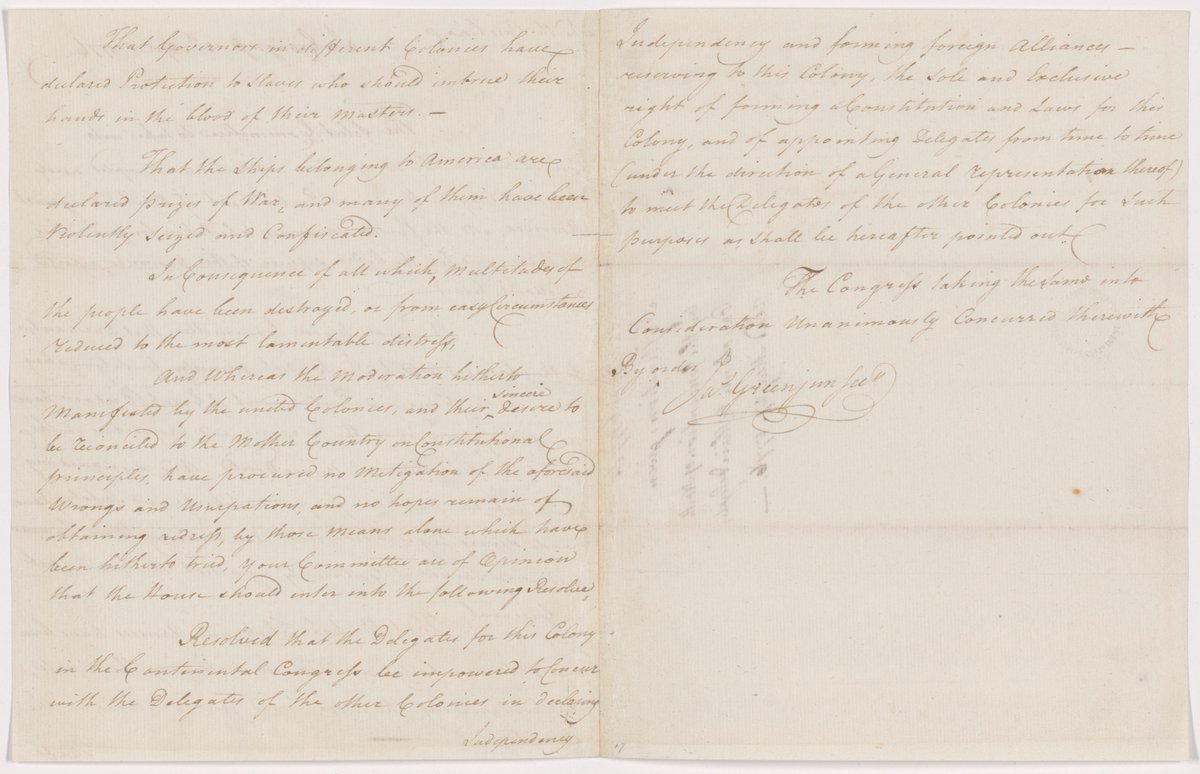 That Governors in different Colonies have
declared Protection to Slaves who should imbrue their
hands in the blood of their Masters. —
That the Ships belonging to America are
declared prizes of War, and many of them have been
Violently Seized and Confiscated.
In Consequence of all which, multitudes of
the people have been destroyed, or from easy Circumstances
reduced to the most lamentable distress,
And Whereas the Moderation hitherto
Manifested by the united Colonies, and their sincere desire to
be reconciled to the Mother Country on Constitutional
principles, have procured no Mitigation of the aforesaid
Wrongs and Usurpations, and no hopes remain of
obtaining redress, by those Means alone which have
been hitherto tried, Your Committee are of Opinion
that the House should enter into the following Resolve,
Resolved that the Delegates for this Colony
in the Continental Congress be impowered to Concur
with the Delegates of the other Colonies in declaring
Independency
Independency and forming foreign Alliances —
reserving to this Colony, the Sole and Exclusive
right of forming a Constitution and Laws for this
Colony, and of appointing Delegates from time to time
(under the direction of a General Representation thereof)
to meet the Delegates of the other Colonies for such
purposes as shall be hereafter pointed out.
The Congress taking the same into
Consideration Unanimously Concurred therewith
By order
Jas. Green jun Secy